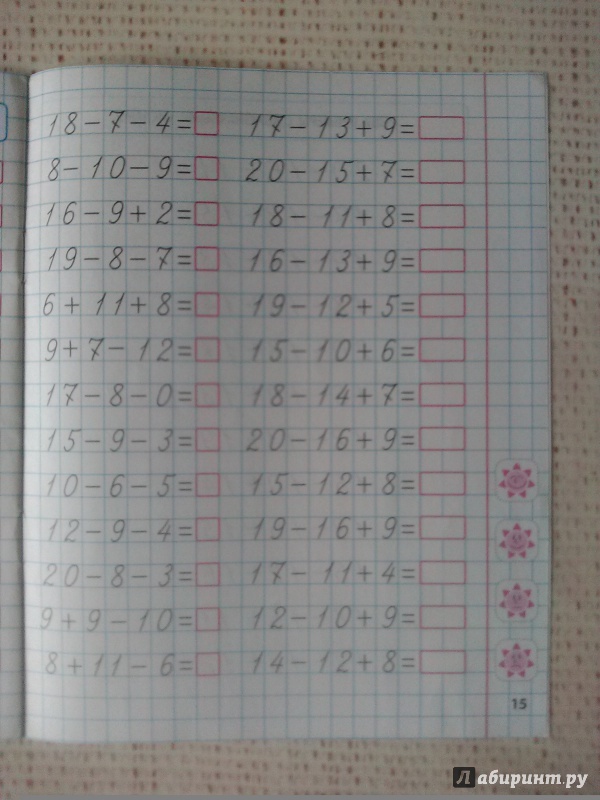 18-7-4= 17-13+9=
8-10-9= 20-15+7=
16-9+2= 18-11+8=
19-8-7= 16-13+9=
6+11+8= 19-12+5=
9+7-12= 15-10+6=
17-8-0= 18-14+7=
15-9-3= 20-16+9=
10-6-5= 15-12+8=
12-9-4= 19-16+9=
20-8-3= 17-11+4=
9+9-10= 12-10+9=
8+11-6= 14-12+8=
15
Лабиринт.ру